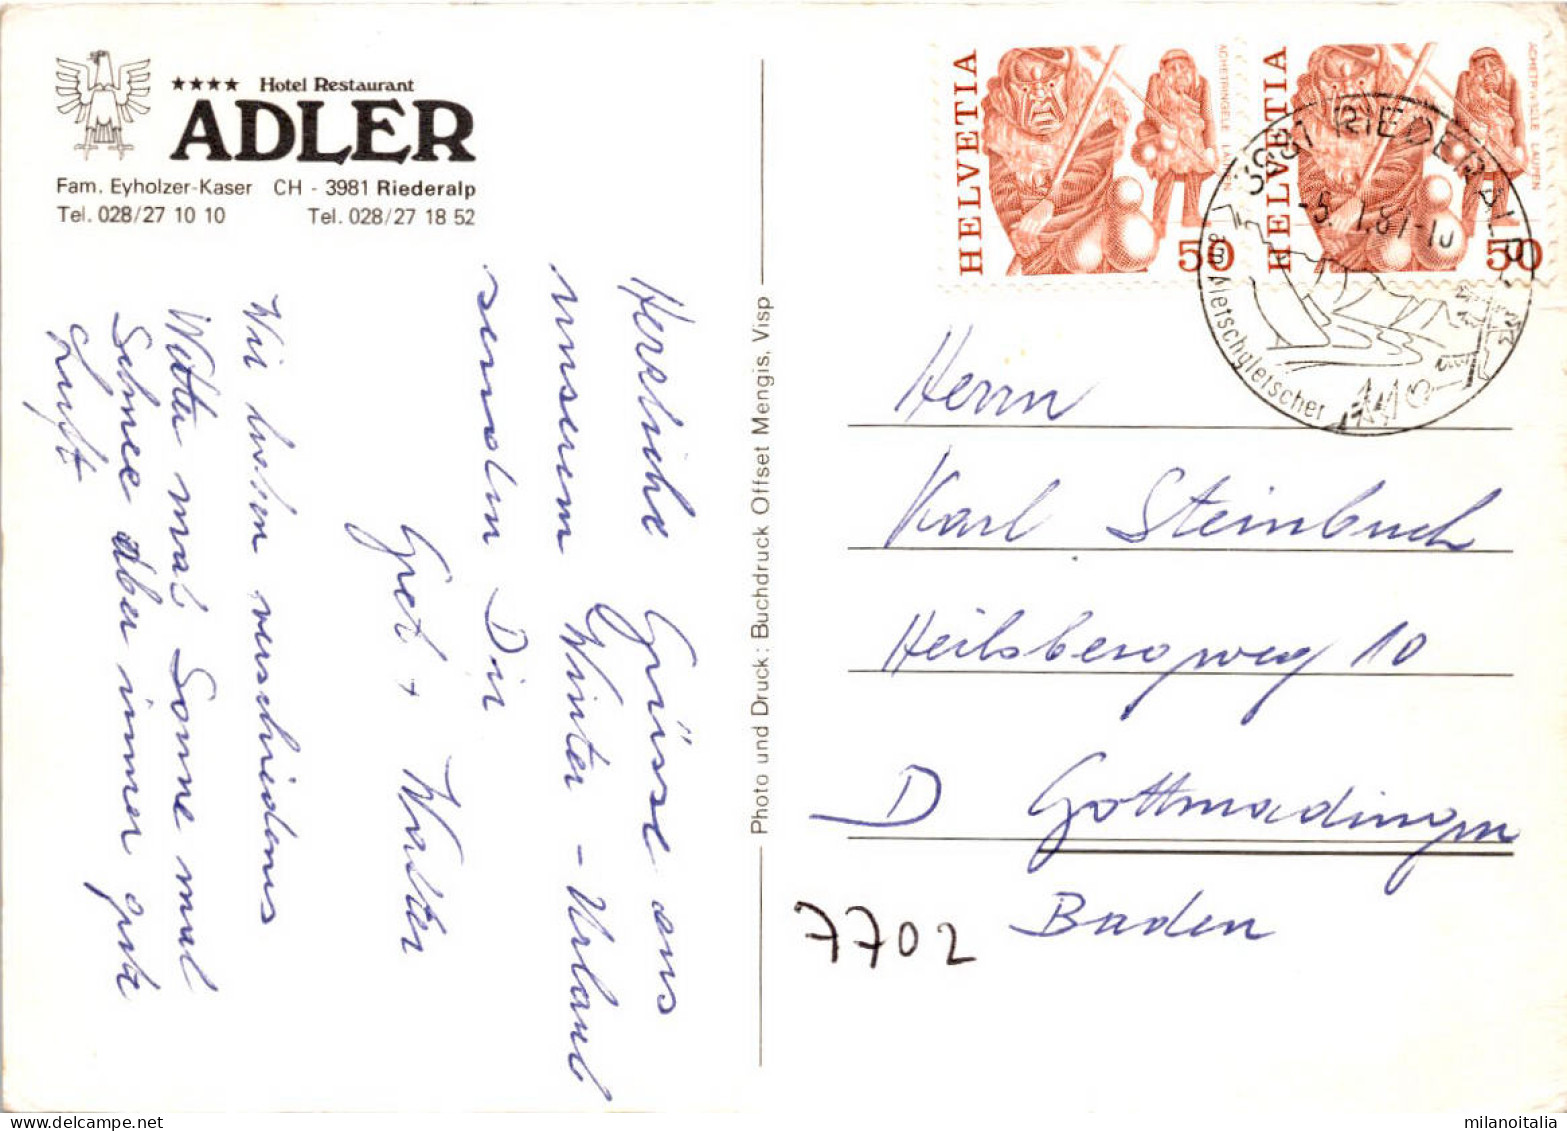 ★★★★ Hotel Restaurant
ADLER
Fam. Eyholzer-Kaser CH - 3981 Riederalp
Tel. 028/27 10 10 Tel. 028/27 18 52
Herzliche Grüsse aus
unserem Winter - Urlaub
senden Dir
Gret + Walter
Wir haben verschiedenes
Wetter mal Sonne mal
Schnee aber immer gute
Luft
Photo und Druck: Buchdruck Offset Mengis, Visp
HELVETIA
ACHETRINGELE LAUPEN
50
HELVETIA
ACHETRINGELE LAUPEN
50
3981 RIEDERALP
-5.1.87-10
am Aletschgletscher
Herrn
Karl Steinbuch
Heilsbergweg 10
D Gottmadingen
Baden
7702
milanoitalia